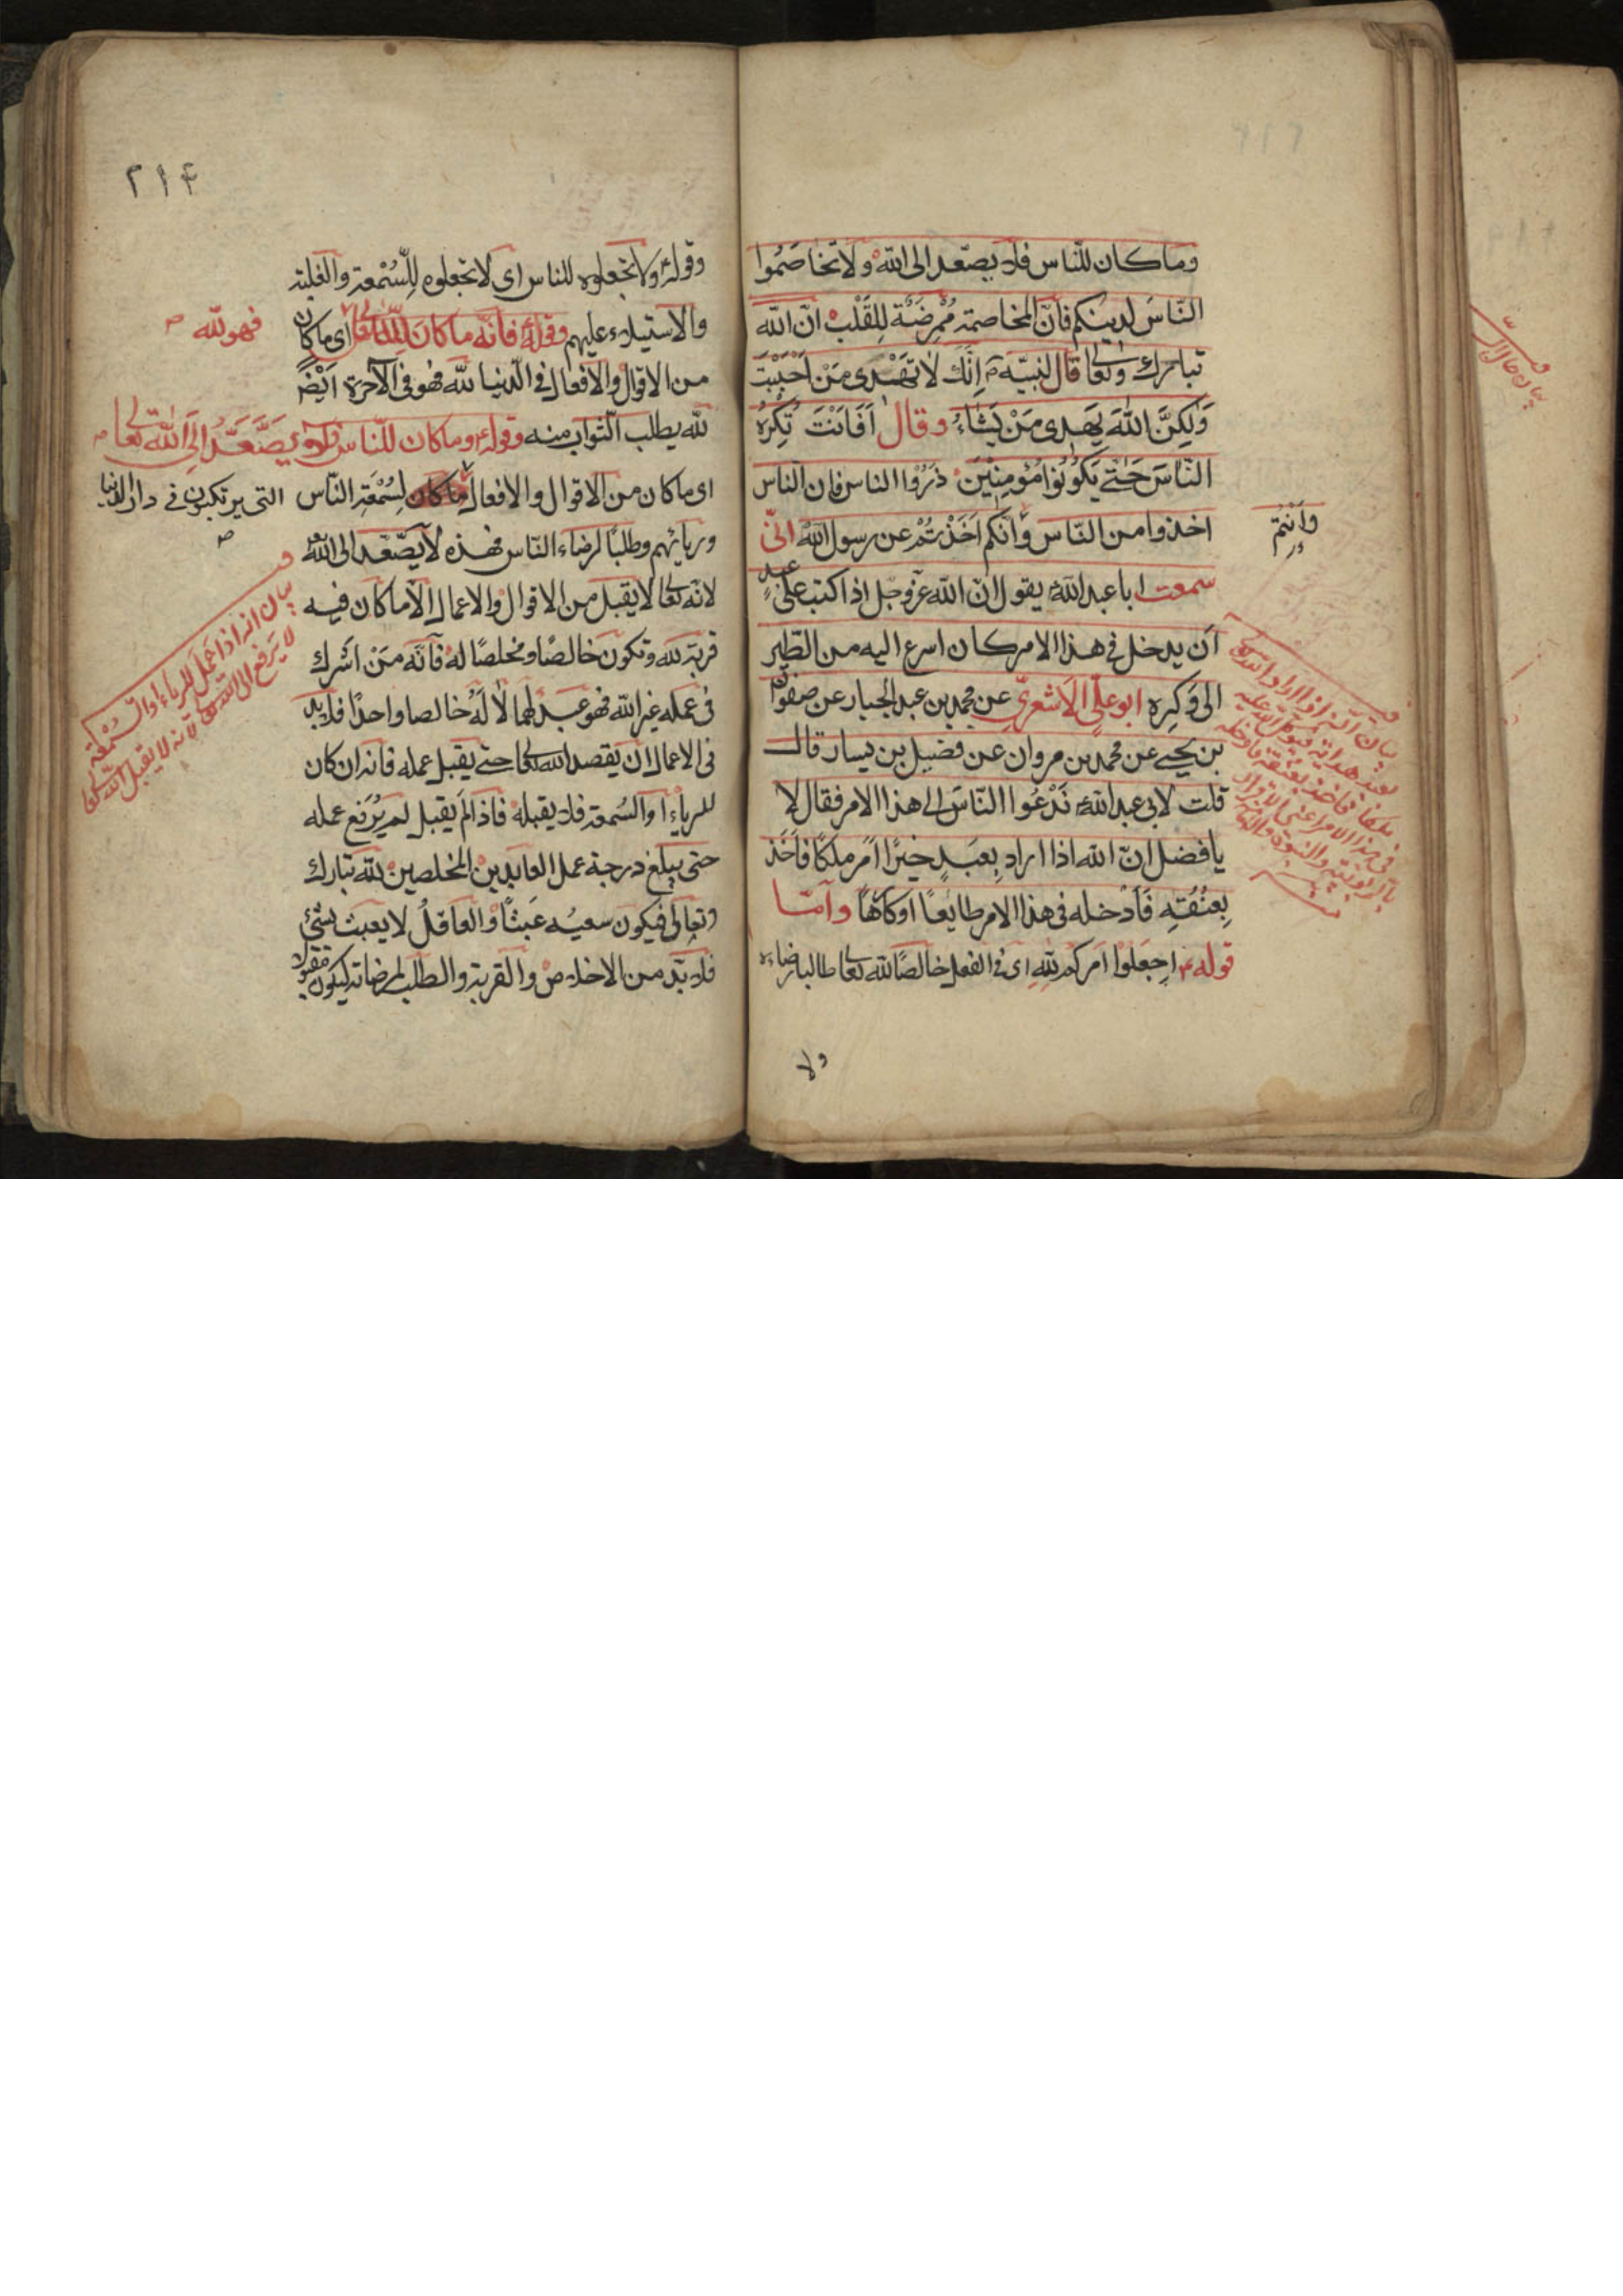 وما كان للناس فلا يصّعد الى الله ولا تخاصموا
الناسَ لدينكم فانّ المخاصمة مُمْرِضَة لِلقَلْب انّ الله
تبارك وتعا قال لنبيّه ص اِنَّكَ لا تَهْدى مَنْ اَحْبَبْتَ
وَلٰكِنَّ اللهَ يَهدى مَنْ يَشاءُ وقال اَفَانْتَ تُكْرِهُ
النّاسَ حَتّى يَكُونُوا مُؤمِنِيْنَ ذَرُوا الناس فان الناس
اخذوا من النّاس وَانّكم اَخَذْتُمْ عن رسول الله انّى
وَاَنْتُم
سمعت ابا عبد الله يقول انّ الله عزّ وجل اذا كتب على عبدٍ
اَن يدخل فى هذا الامر كان اسرع اليه من الطّير
الى وَكرِه ابو علىّ الاَشعرىّ عن محمد بن عبد الجبار عن صفوان
بن يحيى عن محمد بن مروان عن فضيل بن يسار قال
قلت لابى عبد الله نَدْعُوا النّاسَ الى هذا الامر فقال لا
يا فضيل انّ الله اذا اراد بِعَبَدٍ خيرًا اَمَر ملكًا فاَخَذ
بِعُنُقِه فَاَدْخله فى هذا الامر طايعًا اوكارهًا وامّا
قوله ع اجعَلوا اَمركم للهِ اى فى الفعل خالصًا لله تعا طالبا رضاءه
ولا
٢١۴
وقوله ولا تجعلوه للناس اى لا تجعلوه لِلسُمْعة والغلبة
والاستيلاء عليهم وقوله فانّه ما كان لِلّه اى ما كان
فهو لله ص
من الاقوال والافعال فى الدّنيا لله فهو فى الآخرة اَيْضًا
لله يطلب الثواب منه وقوله وما كان للنّاس فلا يصَّعَّدُ اِلَى الله تعا
اى ما كان من الاقوال والافعال لِسُمْعَةِ النّاس التى يرتكبون فى دار الدنيا
وريائهم وطلبًا لرضاء النّاس فهذه لا يصّعّد الى الله
لانّه تعا لا يقبل من الاقوال والاعمال الّا ما كان فيه
قربة لله وتكون خالصًا ومخلصًا له فانّه مَنْ اَشرك
فى عمله غير الله فهو عبد لهما لا لَهُ خالصا واحدًا فلا بد
فى الاعمال ان يقصد الله تعا حتى يقبل عمله فانه ان كان
للرياء او السُمعة فلا يقبله فاذا لَم يقبل لم يُرفع عمله
حتى يبلغ درجة عمل العابدين المخلصين لله تبارك
وتعالى فيكون سعيُه عَبثًا والعاقلُ لا يعبث بشئ
فلا بدّ من الاخلاص والقربة والطلب لمرضاته ليكون مقبولا
بيان انه اذا عمل للرياء او السُّمْعَة
لا يرفع الى الله تعالى لانه لا يقبل الله تعا